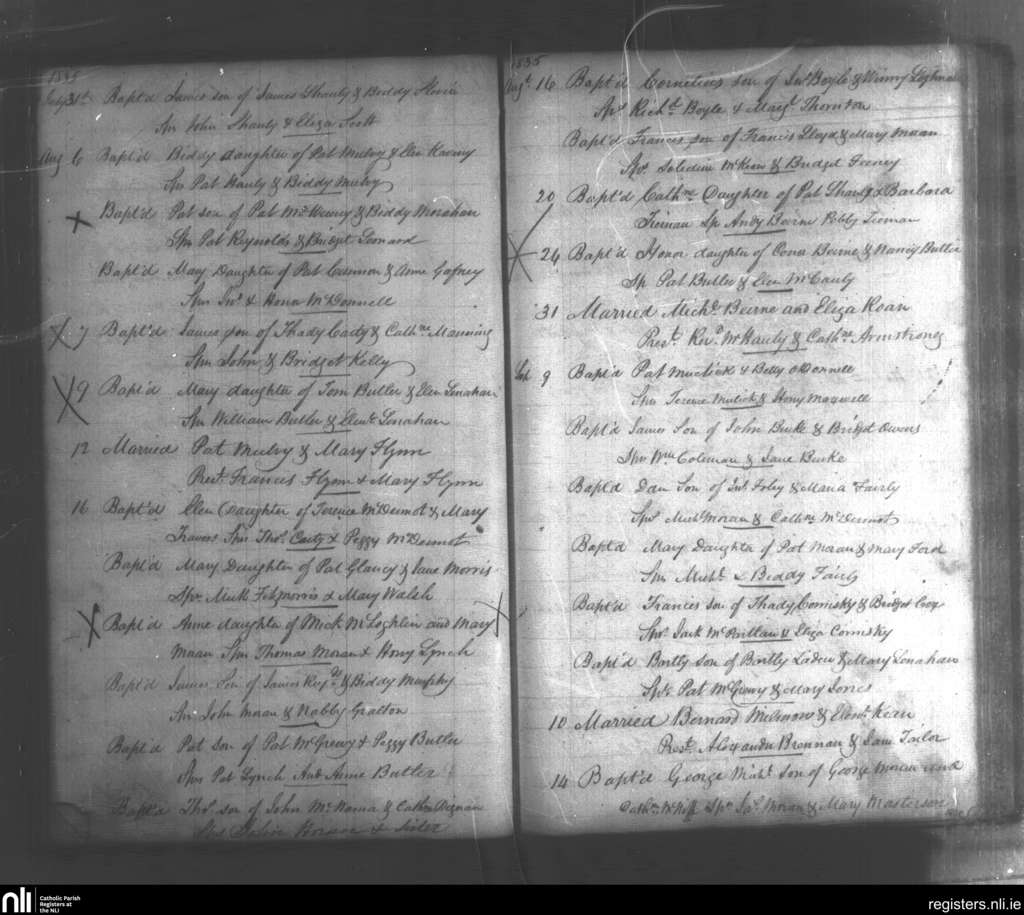 1835
July 31st Bapt'd James son of James Shanly & Biddy
Spn John Shanly & Eliza Scott
Aug 6 Bapt'd Biddy daughter of Pat Mulvy & Elen
Spn Pat Hanly & Biddy Mulvy
Bapt'd Pat son of Pat & Biddy Monahan
Spn Pat Reynolds & Bridget Leonard
Bapt'd Mary Daughter of Pat & Anne Gafney
Spn Jno & Honor McDonnell
7 Bapt'd James son of Thady Carty & Cathne Manning
Spn John & Bridget Kelly
9 Bapt'd Mary daughter of Tom Butler & Elen Lenahan
Spn William Butler & Elenr Lenahan
12 Married Pat Mulvy & Mary Flynn
Prest Francis Flynn & Mary Flynn
16 Bapt'd Elen Daughter of Terence McDermot & Mary
Travers Spn Thos Carty & Peggy McDermot
Bapt'd Mary Daughter of Pat Glancy & Jane Morris
Spr Mick Fitzmorris & Mary Walsh
Bapt'd Anne daughter of Mick McLoghlin and Mary
Maan Spn Thomas Moran & Hony Lynch
Bapt'd James Son of James & Biddy Murphy
John Moran & Nabby Gralton
Bapt'd Pat Son of Pat McGrewy & Peggy Butler
Spn Pat Lynch And Anne Butler
Bapt'd Thos son of John McNama & Cathne Dignan
Spn John Moran & Sister
1835
Augt 16 Bapt'd Cornelius son of Jno Boyle & Winny
Spr Richd Boyle & Margt Thornton
Bapt'd Frances son of Francis Lloyd & Mary Maan
Spr McKeon & Bridget Feeney
20 Bapt'd Cathne Daughter of Pat Shanly & Barbara
Tiernan Sp Andy Beirne Tiernan
24 Bapt'd Honor daughter of Owen Beirne & Nancy Butler
Sp Pat Butler & Elen McCauly
31 Married Michl Beirne and Eliza Roan
Prest Revd McHanly & Cathne Armstrong
Sept 9 Bapt'd Pat & Betty O'Donnell
Spn Terence & Hony Maxwell
Bapt'd James Son of John Burke & Bridget Owens
Spr Wm Coleman & Jane Burke
Bapt'd Dan Son of Jno Foley & Maria Fairly
Spr Michl Moran & Cathne McDermot
Bapt'd Mary Daughter of Pat Moran & Mary Ford
Spn Michl & Biddy Fairly
Bapt'd Frances son of Thady Comisky & Bridget Cox
Spr Jack McBrittan & Eliza Comisky
Bapt'd Bartly son of Bartly & Mary Lenahan
Spr Pat McGrewy & Mary Jones
10 Married Bernard & Elenr Kean
Prest Alexander Brennan & Jane Tailor
14 Bapt'd George son of George Moran and
Cathne Spn Jas Moran & Mary Masterson
nli Catholic Parish
Registers at
the NLI
registers.nli.ie